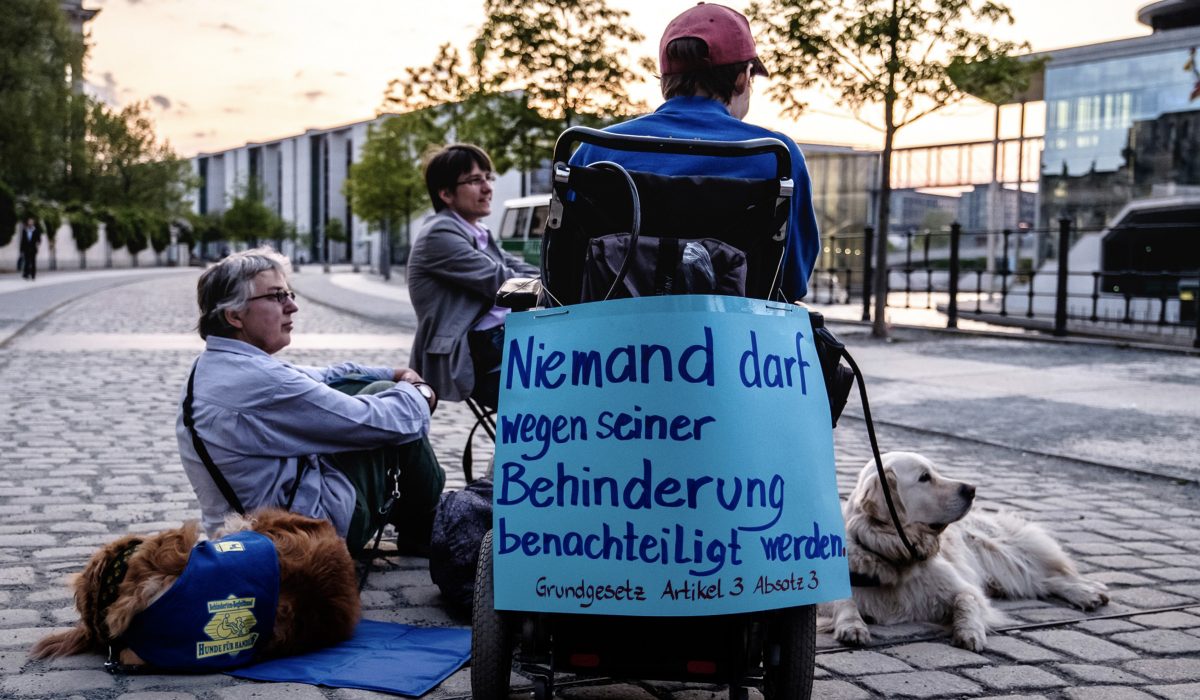 Niemand darf
wegen seiner
Behinderung
benachteiligt werden.
Grundgesetz Artikel 3 Absatz 3
HUNDE FÜR HANDICAPS